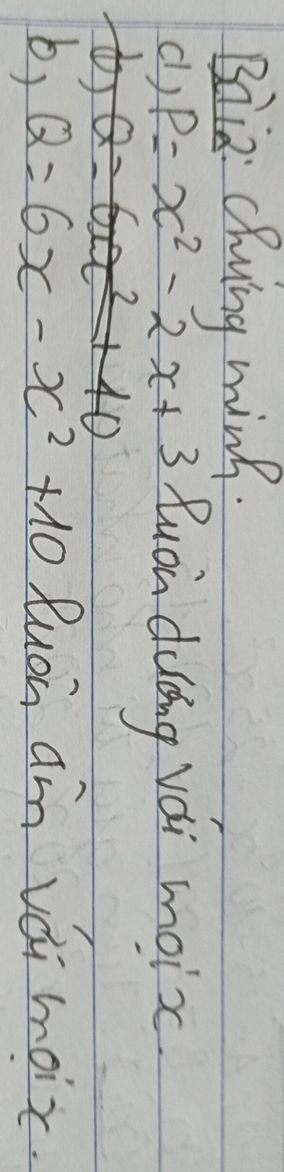 Bài 2: Chứng minh.
a, P = x² - 2x + 3 luôn dương với mọi x.
b, Q = 6x - x² + 10 luôn âm với mọi x.